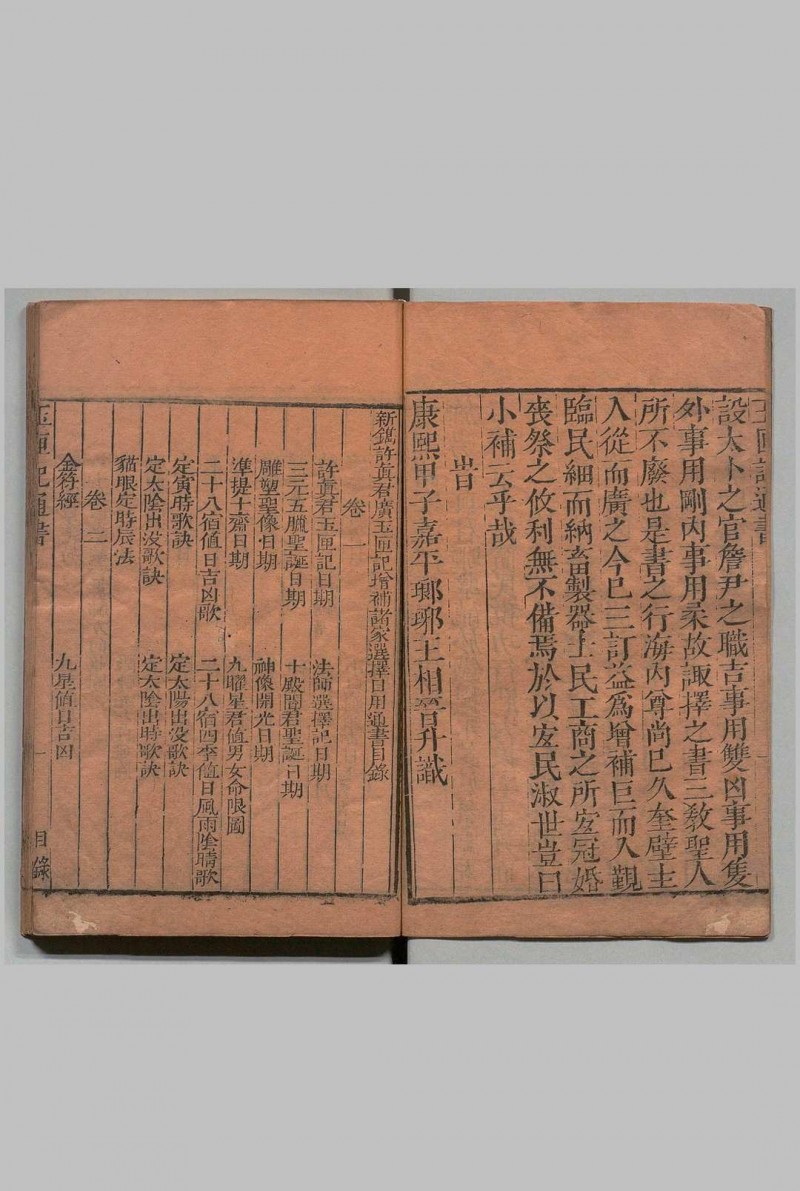 玉匣記通書
設太卜之官詹尹之職吉事用雙凶事用隻
外事用剛內事用柔故諏擇之書三教聖人
所不廢也是書之行海內尊尚已久奎壁主
人從而廣之今已三訂益為增補巨而入覲
臨民細而納畜製器士民工商之所宐冠婚
喪祭之攸利無不備焉於以宐民淑世豈曰
小補云乎哉
旹
康熙甲子嘉平瑯琊王相晉升識
新鐫許真君廣玉匣記增補諸家選擇日用通書目錄
卷一
許真君玉匣記日期 法師選擇記日期
三元五臘聖誕日期 十殿閻君聖誕日期
雕塑聖像日期 神像開光日期
準提十齋日期 九曜星君值男女命限圖
二十八宿值日吉凶歌 二十八宿四季值日風雨陰晴歌
定寅時歌訣 定太陽出沒歌訣
定太陰出沒歌訣 定太陰出時歌訣
貓眼定時辰法
卷二
金符經 九星值日吉凶
玉匣記通書 一 目錄